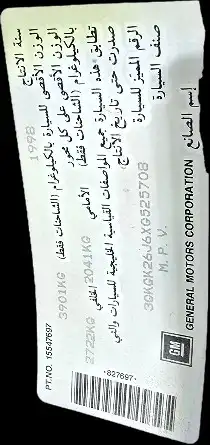 إسم الصانع GENERAL MOTORS CORPORATION
صنف السيارة M.P.V.
الرقم المميز للسيارة 3GKGK26J6XG525708
صدرت حتى تاريخ الانتاج
تطابق هذه السيارة جميع المواصفات القياسية الخليجية للسيارات والتي
الوزن الأقصى على كل محور
بالكيلوغرام (الشاحنات فقط) الأمامي 2041KG الخلفي 2722KG
الوزن الأقصى للسيارة بالكيلوغرام (الشاحنات فقط) 3901KG
سنة الانتاج 1998
PT.NO. 15547697
GM
*827697*